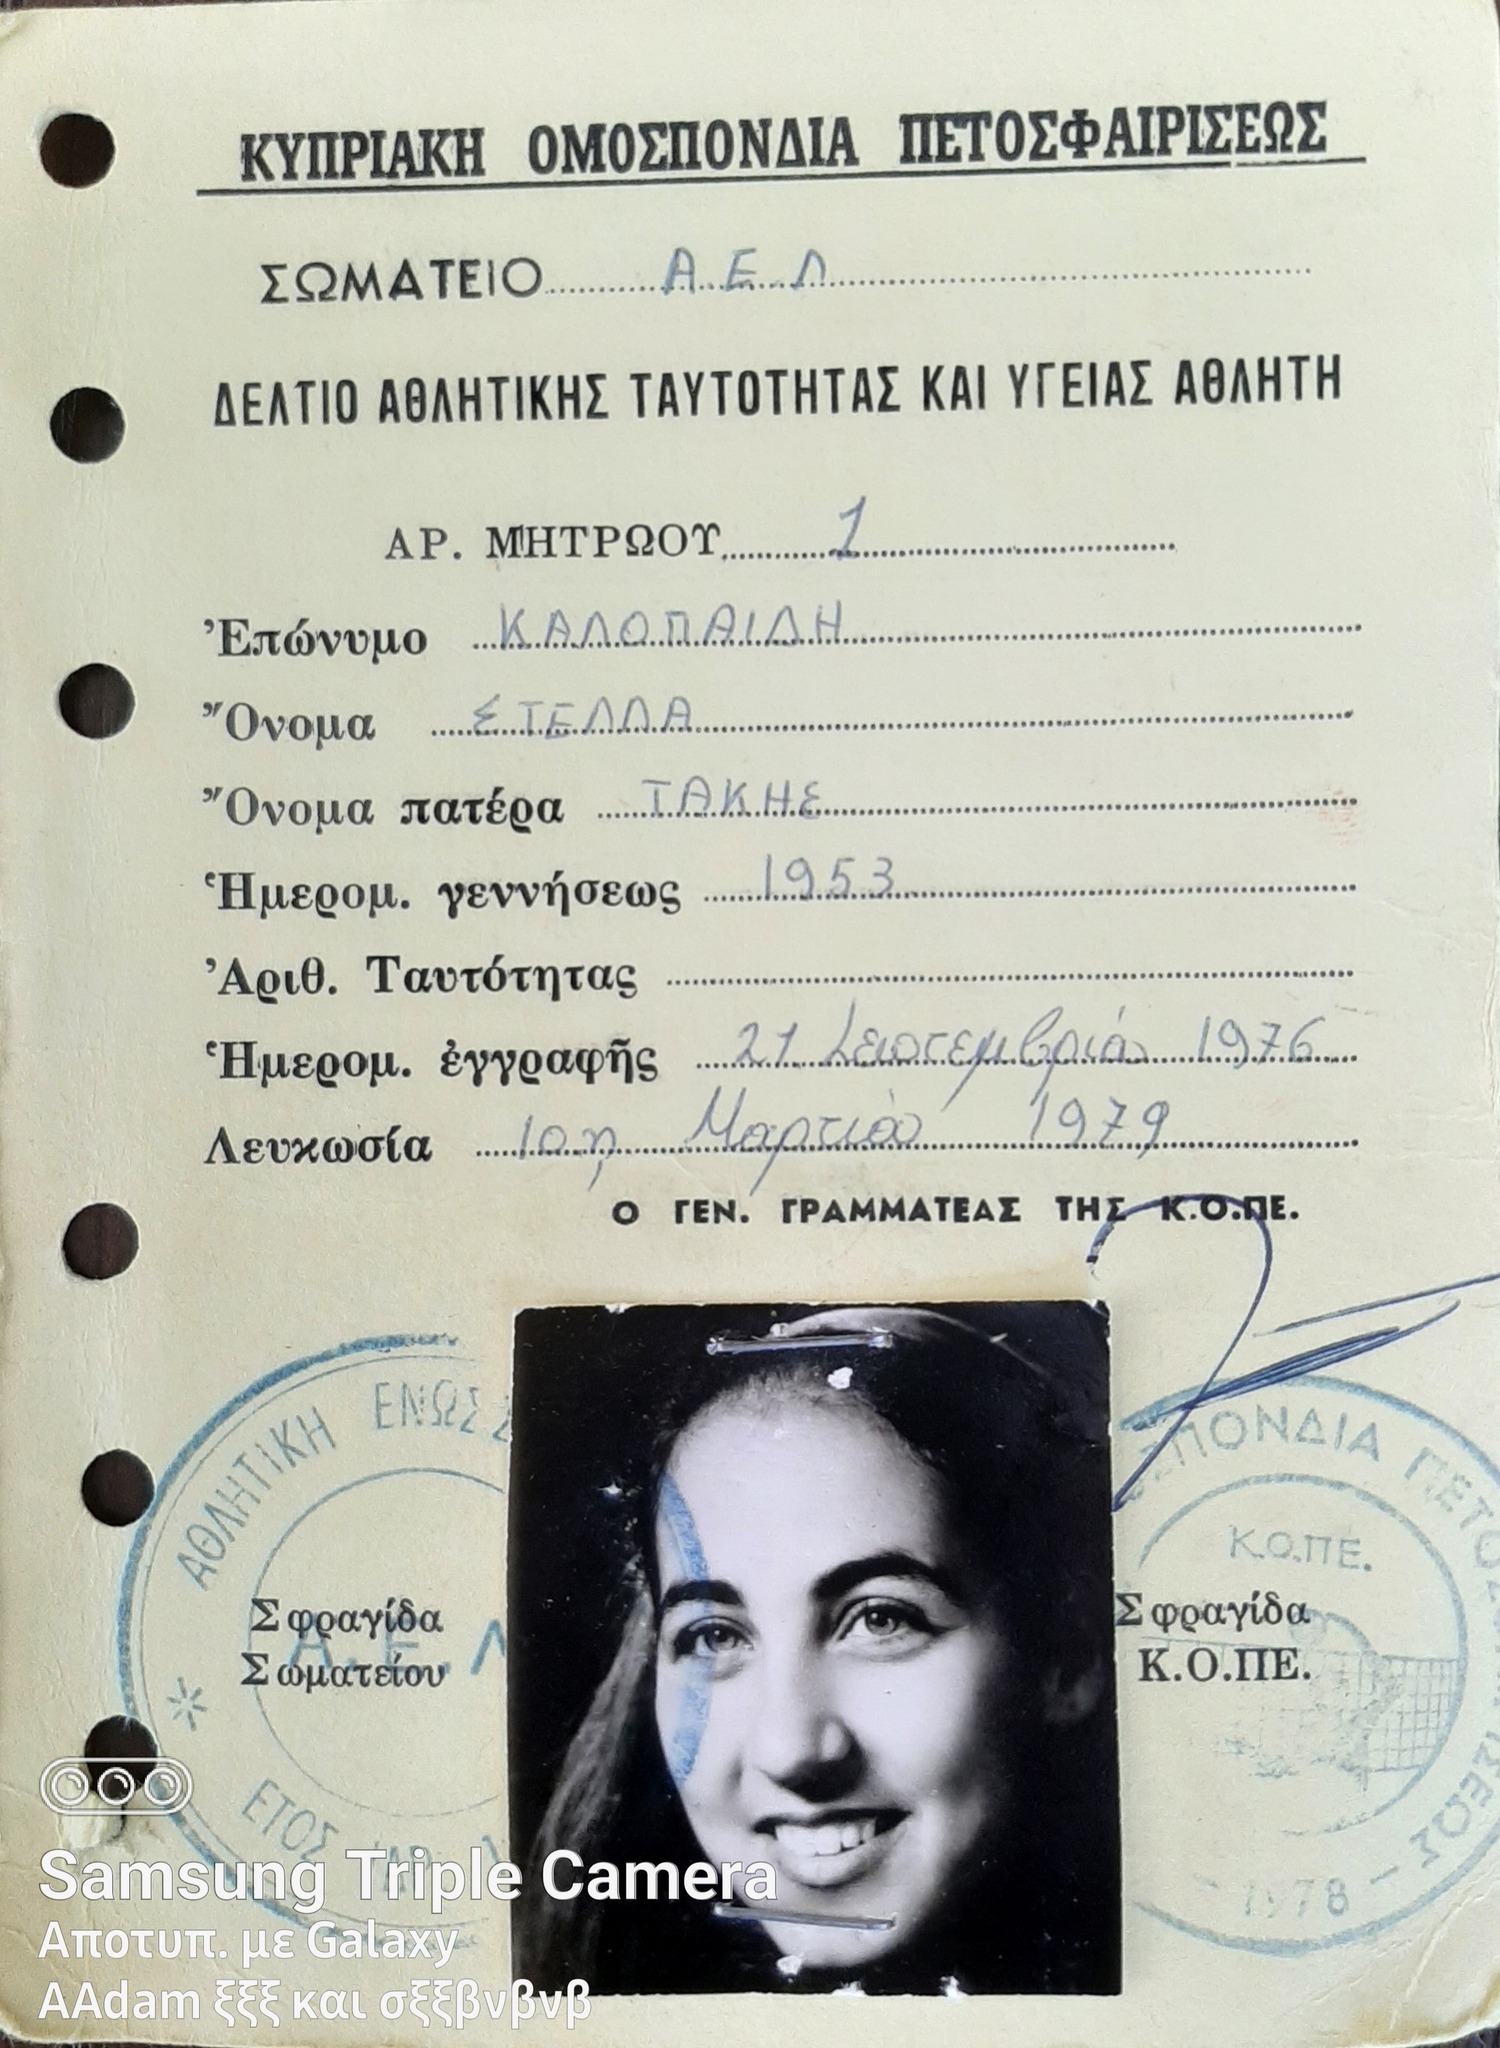 ΚΥΠΡΙΑΚΗ ΟΜΟΣΠΟΝΔΙΑ ΠΕΤΟΣΦΑΙΡΙΣΕΩΣ
ΣΩΜΑΤΕΙΟ Α.Ε.Λ
ΔΕΛΤΙΟ ΑΘΛΗΤΙΚΗΣ ΤΑΥΤΟΤΗΤΑΣ ΚΑΙ ΥΓΕΙΑΣ ΑΘΛΗΤΗ
ΑΡ. ΜΗΤΡΩΟΥ 1
Ἐπώνυμο ΚΑΛΟΠΑΙΔΗ
Ὄνομα ΣΤΕΛΛΑ
Ὄνομα πατέρα ΤΑΚΗΣ
Ἡμερομ. γεννήσεως 1953
Ἀριθ. Ταυτότητας
Ἡμερομ. ἐγγραφῆς 21 Σεπτεμβρίου 1976
Λευκωσία 1ση Μαρτίου 1979
Ο ΓΕΝ. ΓΡΑΜΜΑΤΕΑΣ ΤΗΣ Κ.Ο.ΠΕ.
ΑΘΛΗΤΙΚΗ ΕΝΩΣΣ
Α.Ε.Λ
ΕΤΟΣ
Σφραγίδα
Σωματείου
ΠΟΝΔΙΑ ΠΕΤΟΣ
Κ.Ο.ΠΕ.
Σφραγίδα
Κ.Ο.ΠΕ.
ΙΣΕΩΣ
- 1978 -
Samsung Triple Camera
Αποτυπ. με Galaxy
AAdam ξξξ και σξξβνβνβ